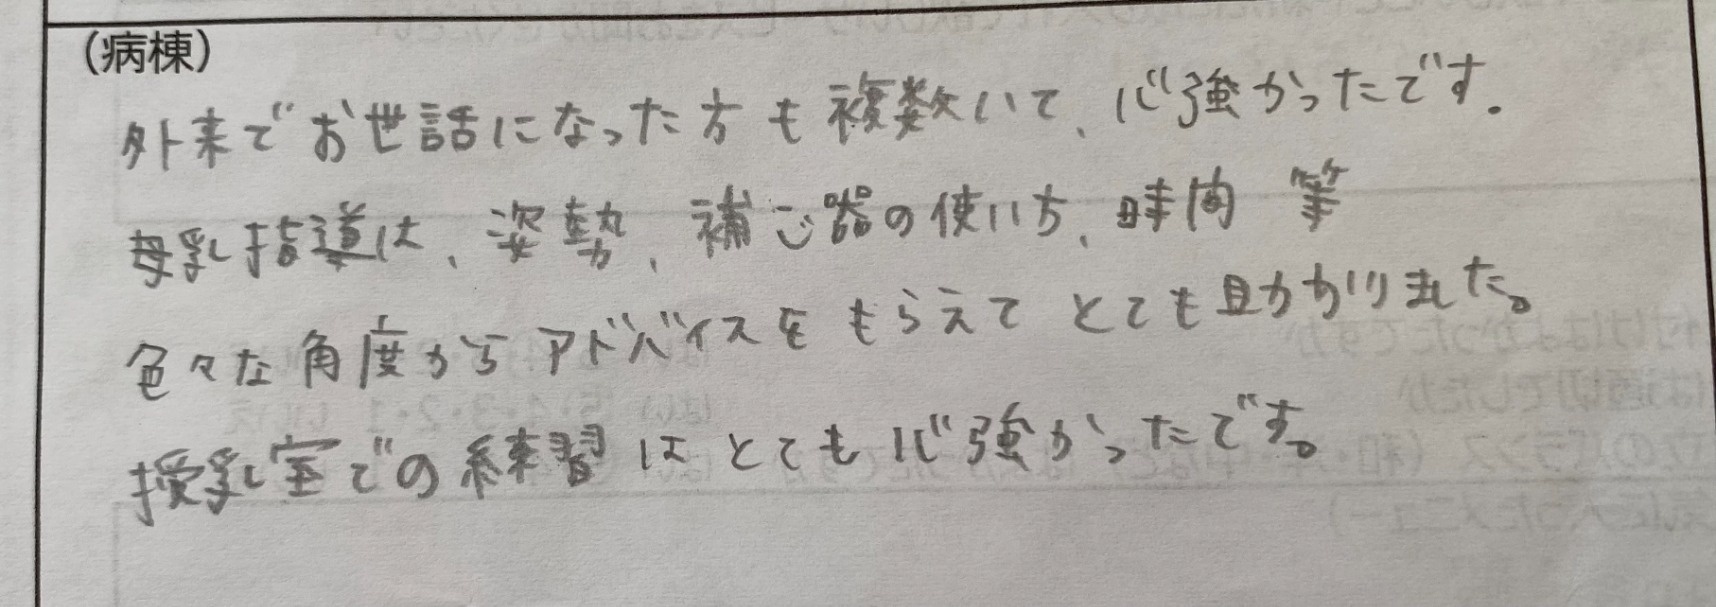 (病棟)
外来でお世話になった方も複数いて、心強かったです。
母乳指導は、姿勢、補心器の使い方、時間 等
色々な角度からアドバイスをもらえてとても助かりました。
授乳室での練習はとても心強かったです。